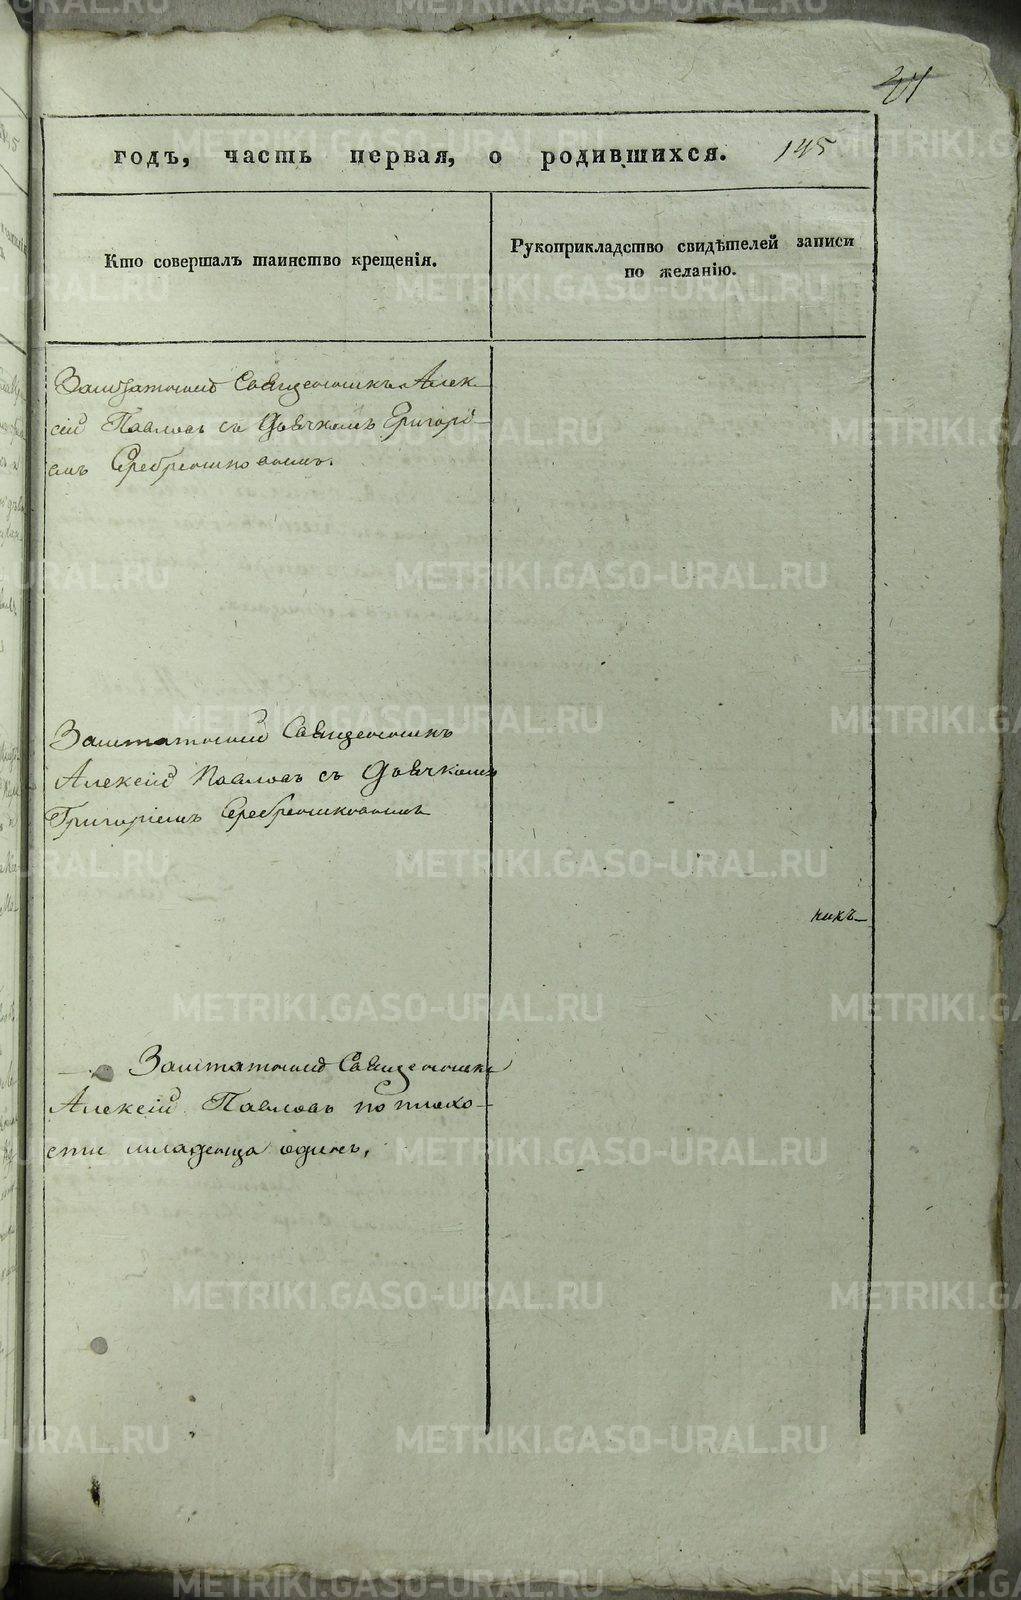 годъ, часть первая, о родившихся. 145
Кто совершалъ таинство крещенія.
Рукоприкладство свидѣтелей записи
по желанію.
Заштатный Священникъ Алек-
сій Павловъ съ Дьячкомъ Григорі-
емъ Серебренниковымъ.
Заштатный Священникъ
Алексій Павловъ съ Дьячкомъ
Григоріемъ Серебренниковымъ
никъ
Заштатный Священникъ
Алексій Павловъ по плохо-
сти младенца одинъ,
METRIKI.GASO-URAL.RU